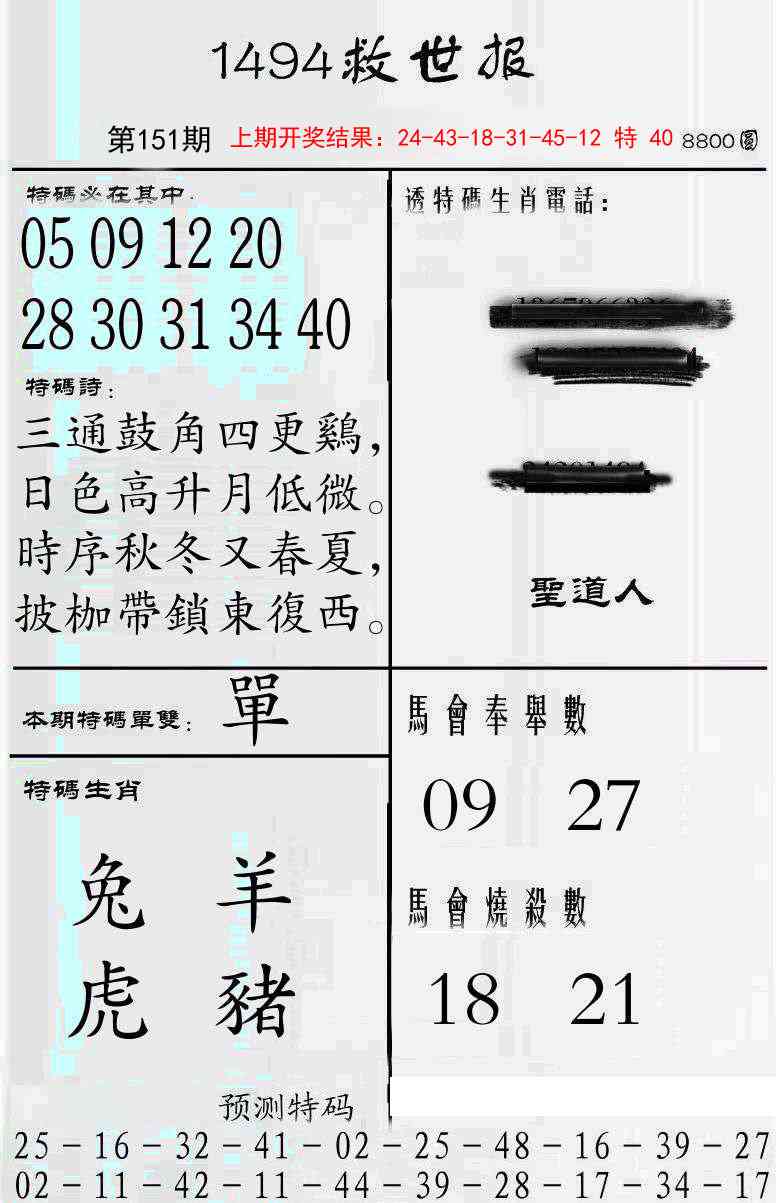 1494救世报
第151期 上期开奖结果：24-43-18-31-45-12 特 40 8800圓
特碼必在其中.
05 09 12 20
28 30 31 34 40
特碼詩：
三通鼓角四更鷄，
日色高升月低微。
時序秋冬又春夏，
披枷帶鎖東復西。
本期特碼單雙：單
特碼生肖
兔 羊
虎 豬
透特碼生肖電話：
聖道人
馬會奉舉數
09 27
馬會燒殺數
18 21
预测特码
25－16－32－41－02－25－48－16－39－27
02－11－42－11－44－39－28－17－34－17